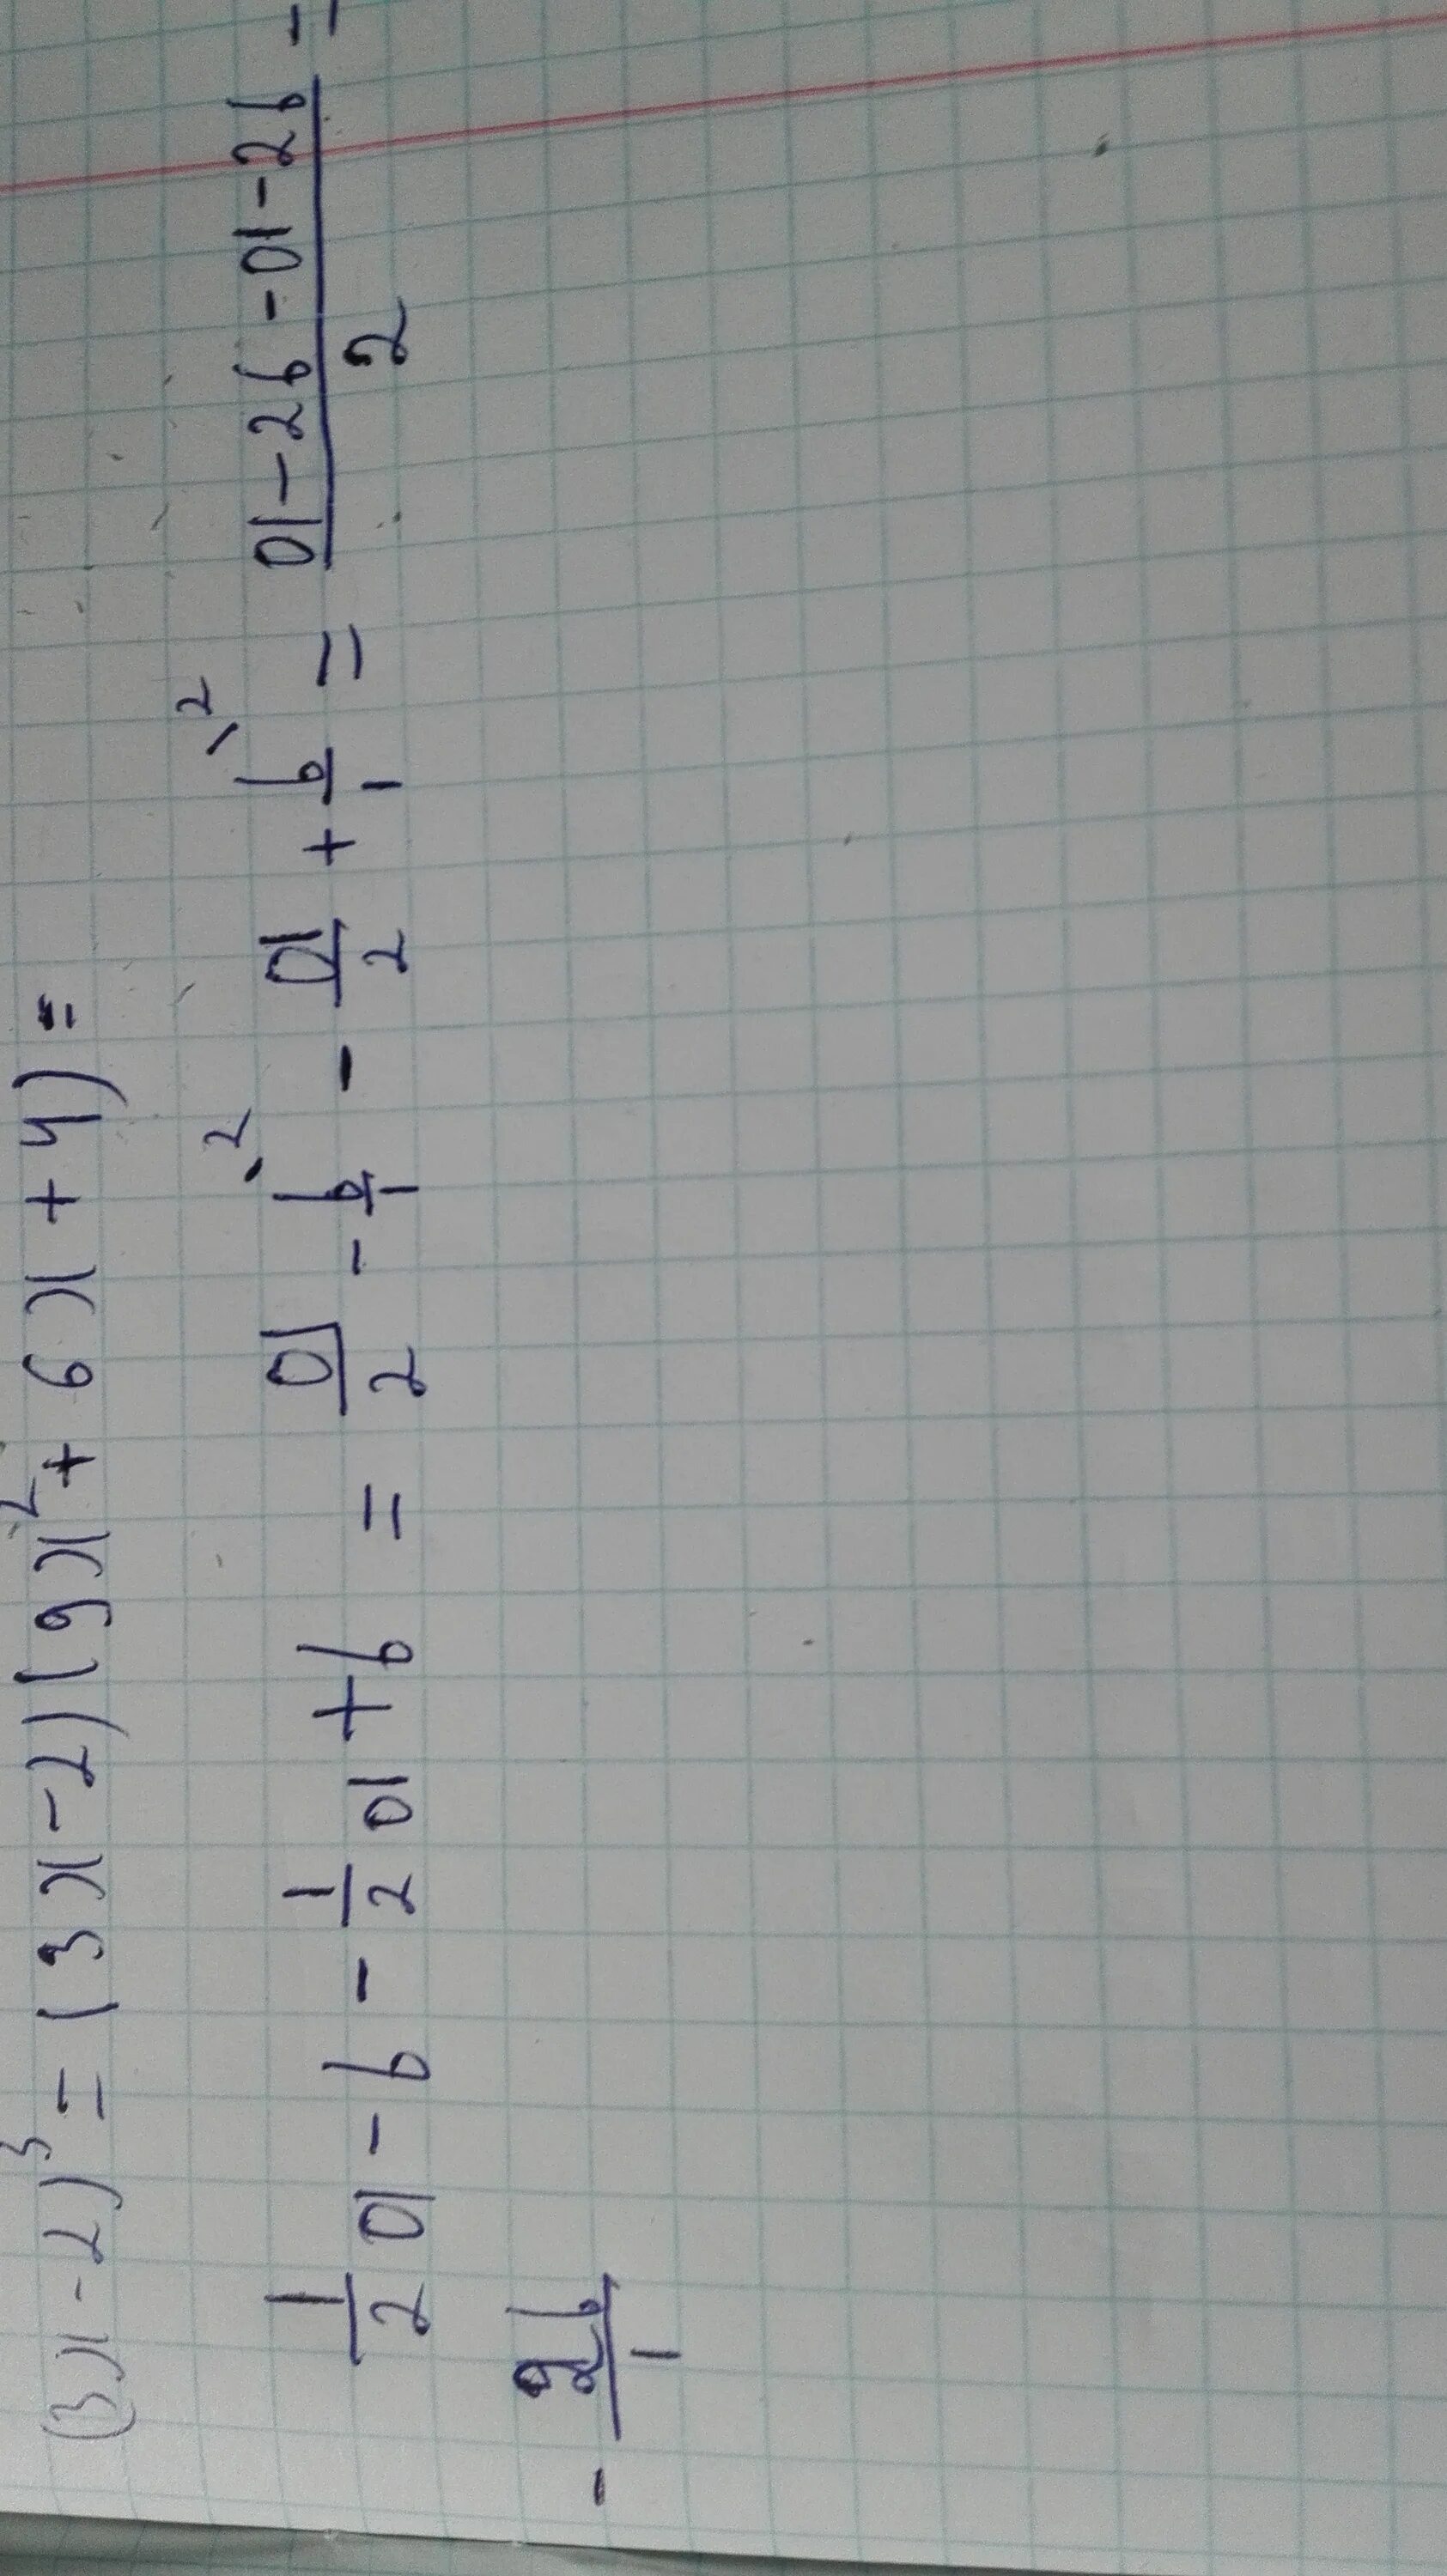 (3x-2)³ = (3x-2)(9x²+6x+4) =
1/2 a - b - 1/2 a + b = a/2 - b/1 ·2 - a/2 + b/1 \2 = (a-2b-a-2b)/2 =
- 2b/1